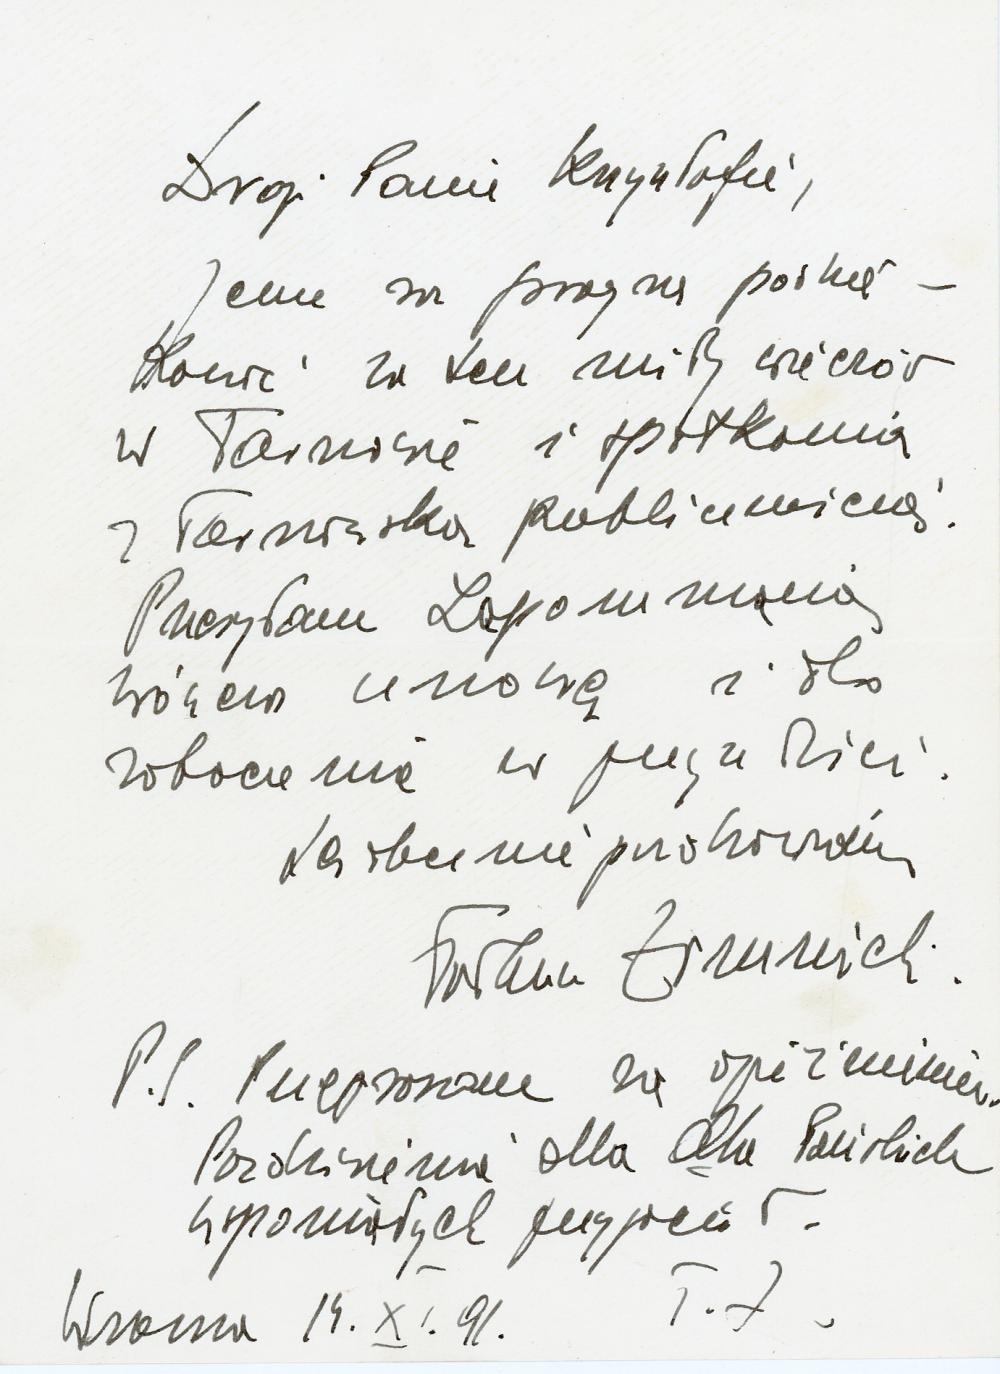 Drogi Panie Krzysztofie,
Jeszcze raz pragnę podzię-
kować za ten miły wieczór
w Tarnowie i spotkania
z Tarnowską publicznością.
Przesyłam zapomnianą
wówczas umowę i do
zobaczenia w przyszłości.
Serdecznie pozdrawiam
P.S. Przepraszam za opóźnienie.
Pozdrowienia dla Obu Pańskich
wspaniałych przyjaciół.
Warszawa 14.XI.91. T.Z.